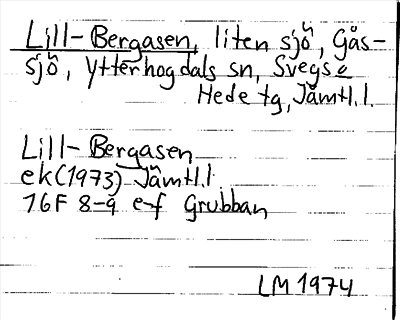 Lill-Bergasen, liten sjö, Gås-
sjö, Ytterhogdals sn, Svegs o
Hede tg, Jämtl. l.
Lill-Bergasen
ek (1973) Jämtl. l
16F 8-9 e-f Grubban
LM 1974